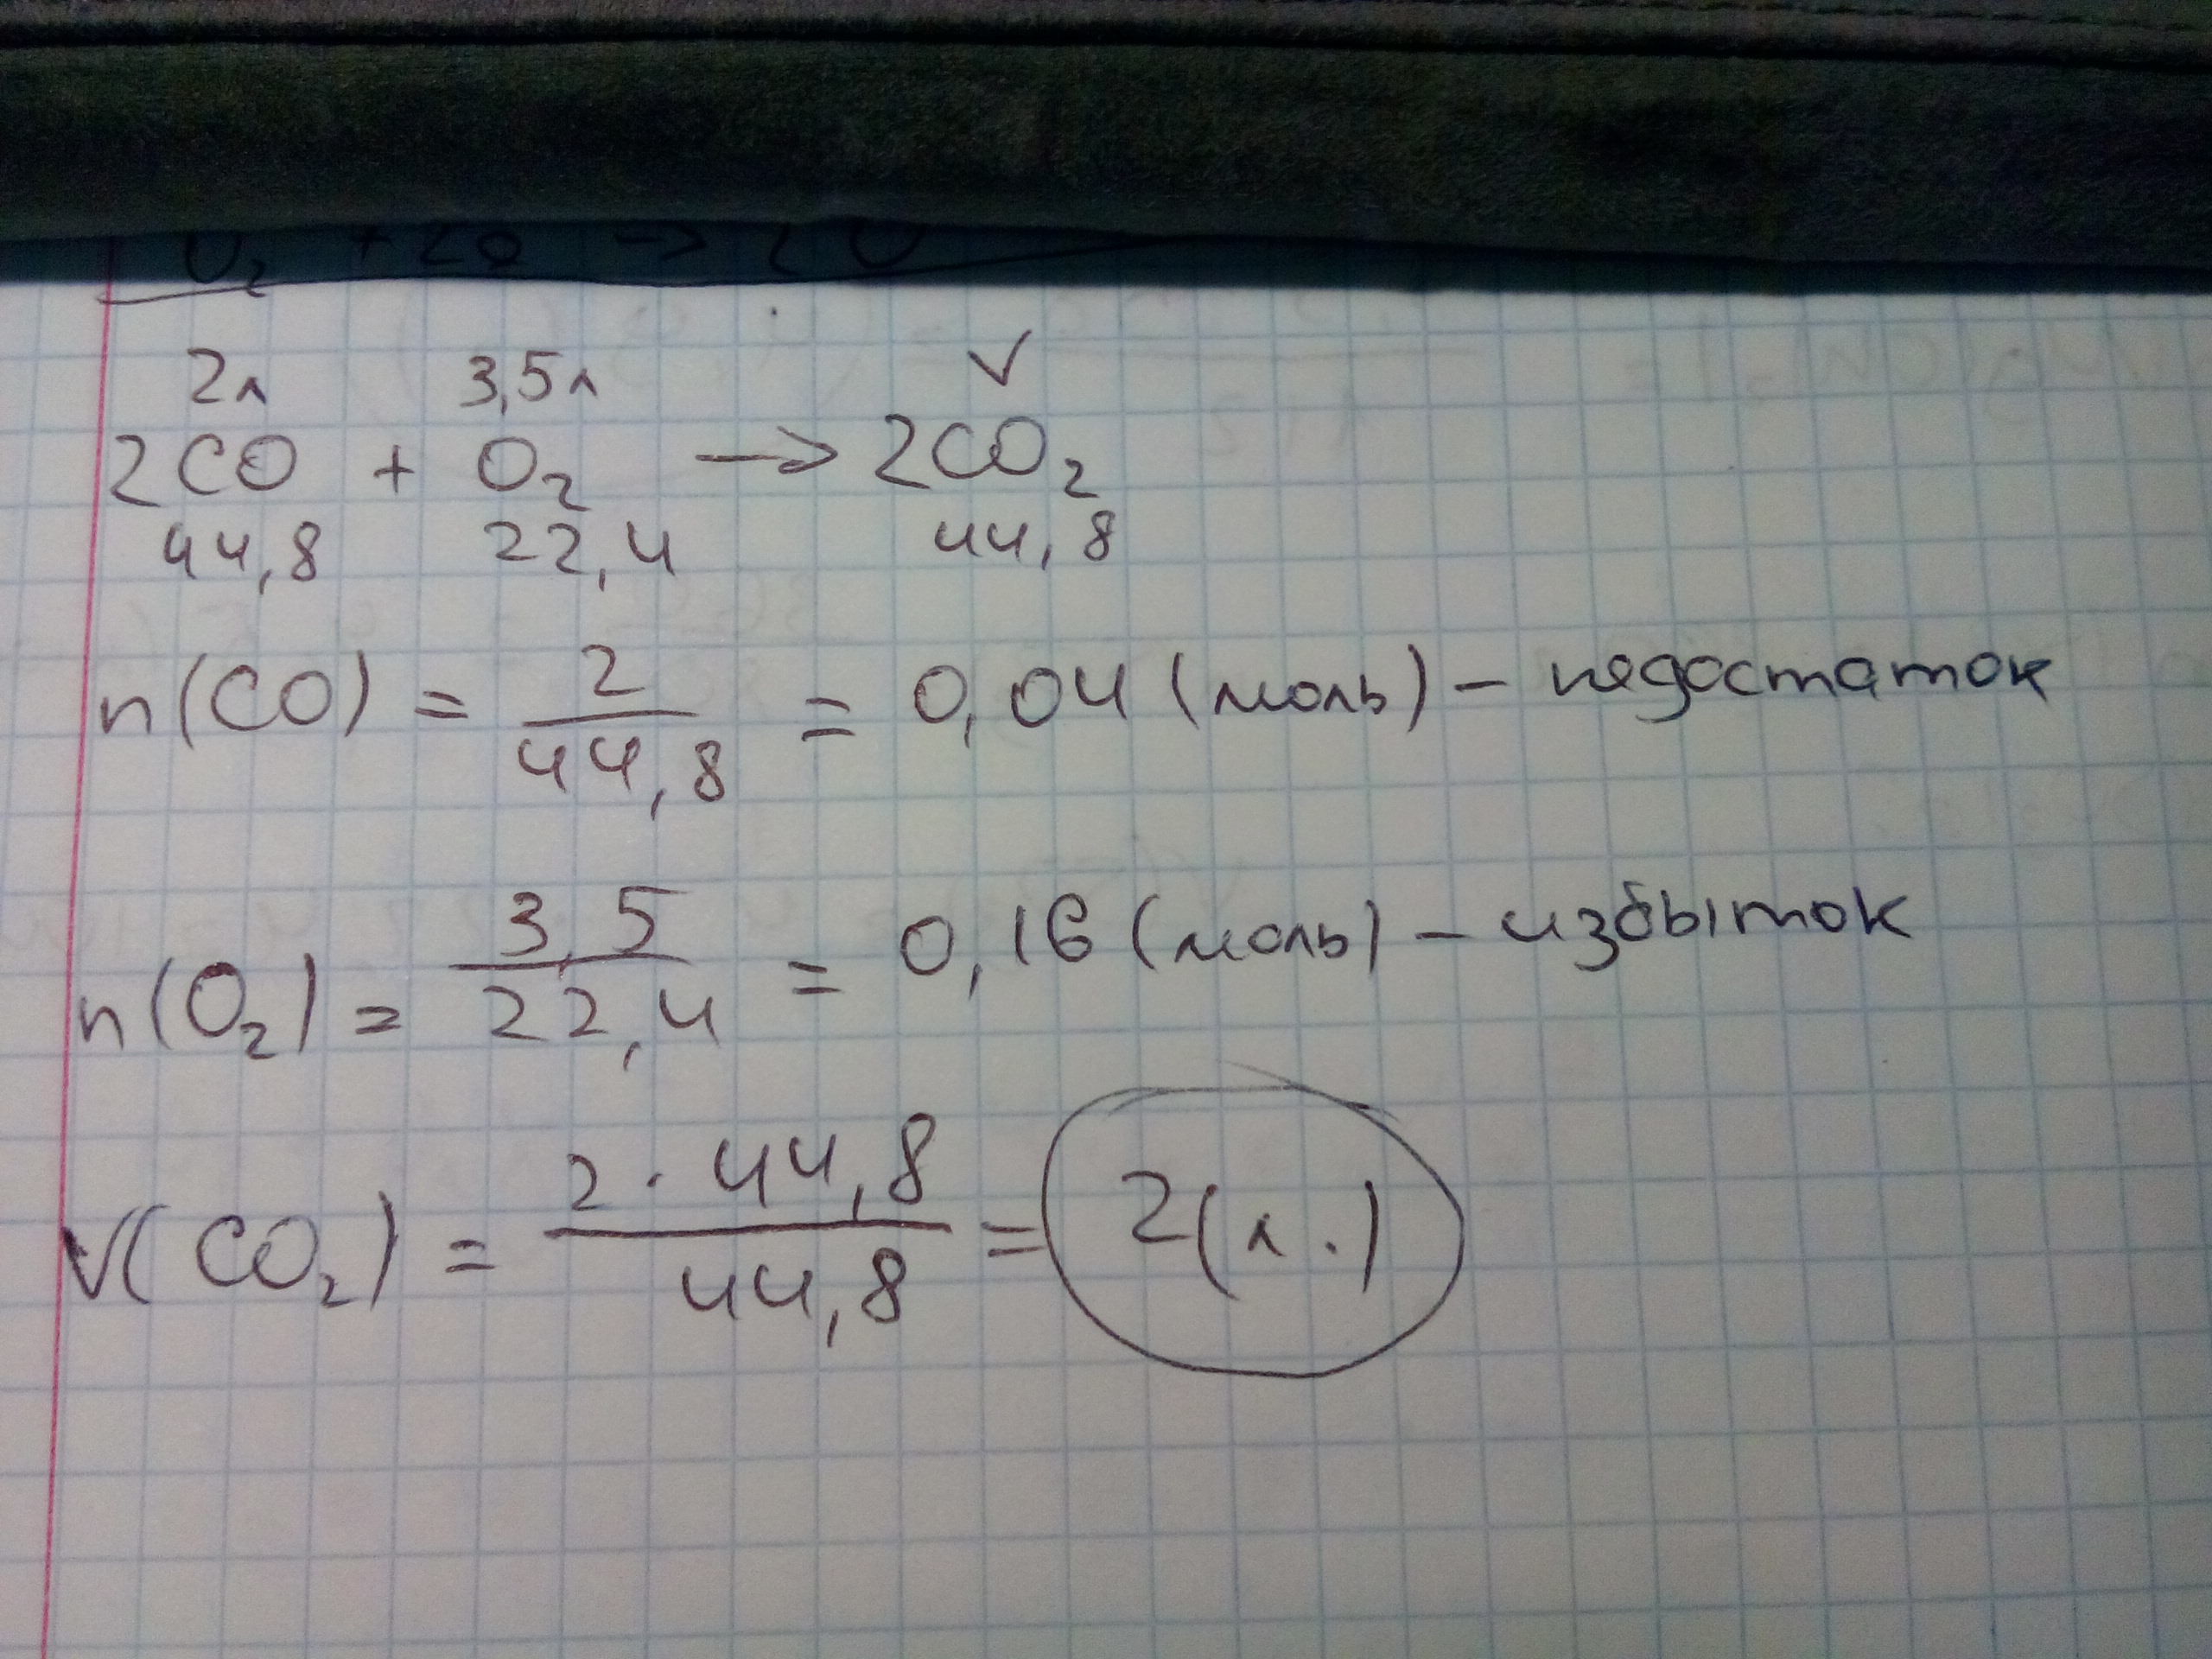 2л 3,5л V
2CO + O₂ → 2CO₂
44,8 22,4 44,8
n(CO) = 2/44,8 = 0,04 (моль) – недостаток
n(O₂) = 3,5/22,4 = 0,16 (моль) – избыток
V(CO₂) = 2·44,8/44,8 = 2(л.)